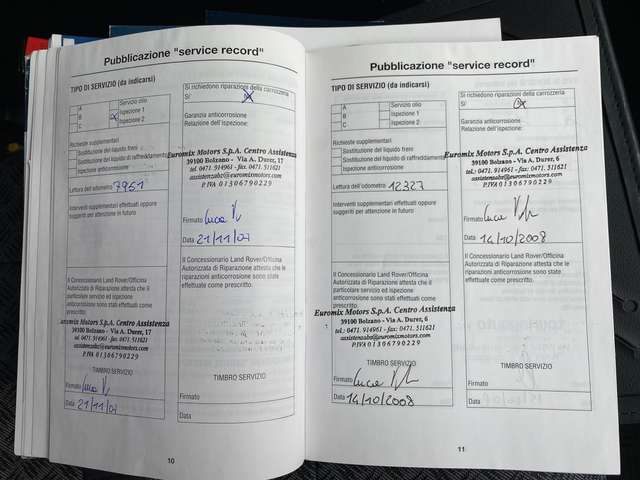 Pubblicazione "service record"
TIPO DI SERVIZIO (da indicarsi)
A
B
C
Servizio olio
Ispezione 1
Ispezione 2
Richieste supplementari
Sostituzione del liquido freni
Sostituzione del liquido di raffreddamento
Ispezione anticorrosione
Lettura dell'odometro 7951
Interventi supplementari effettuati oppure
suggeriti per attenzione in futuro
Si richiedono riparazioni della carrozzeria
Sì
Garanzia anticorrosione
Relazione dell'ispezione:
Euromix Motors S.p.A. Centro Assistenza
39100 Bolzano - Via A. Durer, 17
tel. 0471. 914961 - fax. 0471. 511621
assistenzabz@euromixmotors.com
P.IVA 01306790229
Firmato Luca
Data 21/11/07
Il Concessionario Land Rover/Officina
Autorizzata di Riparazione attesta che il
particolare servizio ed ispezione
anticorrosione sono stati effettuati come
prescritto.
Euromix Motors S.p.A. Centro Assistenza
39100 Bolzano - Via A. Durer, 17
tel. 0471. 914961 - fax. 0471. 511621
assistenzabz@euromixmotors.com
P.IVA 01306790229
TIMBRO SERVIZIO
Firmato Luca
Data 21/11/07
Il Concessionario Land Rover/Officina
Autorizzata di Riparazione attesta che le
riparazioni anticorrosione sono state
effettuate come prescritto.
TIMBRO SERVIZIO
Firmato
Data
10
Pubblicazione "service record"
TIPO DI SERVIZIO (da indicarsi)
A
B
C
Servizio olio
Ispezione 1
Ispezione 2
Richieste supplementari
Sostituzione del liquido freni
Sostituzione del liquido di raffreddamento
Ispezione anticorrosione
Lettura dell'odometro 12327
Interventi supplementari effettuati oppure
suggeriti per attenzione in futuro
Si richiedono riparazioni della carrozzeria
Sì
Garanzia anticorrosione
Relazione dell'ispezione:
Euromix Motors S.p.A. Centro Assistenza
39100 Bolzano - Via A. Durer, 6
tel. 0471. 914961 - fax: 0471. 511621
assistenzabz@euromixmotors.com
P.IVA 01306790229
Firmato Luca
Data 14/10/2008
Il Concessionario Land Rover/Officina
Autorizzata di Riparazione attesta che il
particolare servizio ed ispezione
anticorrosione sono stati effettuati come
prescritto.
Euromix Motors S.p.A. Centro Assistenza
39100 Bolzano - Via A. Durer, 6
tel. 0471. 914961 - fax: 0471. 511621
assistenzabz@euromixmotors.com
P.IVA 01306790229
TIMBRO SERVIZIO
Firmato Luca
Data 14/10/2008
Il Concessionario Land Rover/Officina
Autorizzata di Riparazione attesta che le
riparazioni anticorrosione sono state
effettuate come prescritto.
TIMBRO SERVIZIO
Firmato
Data
11